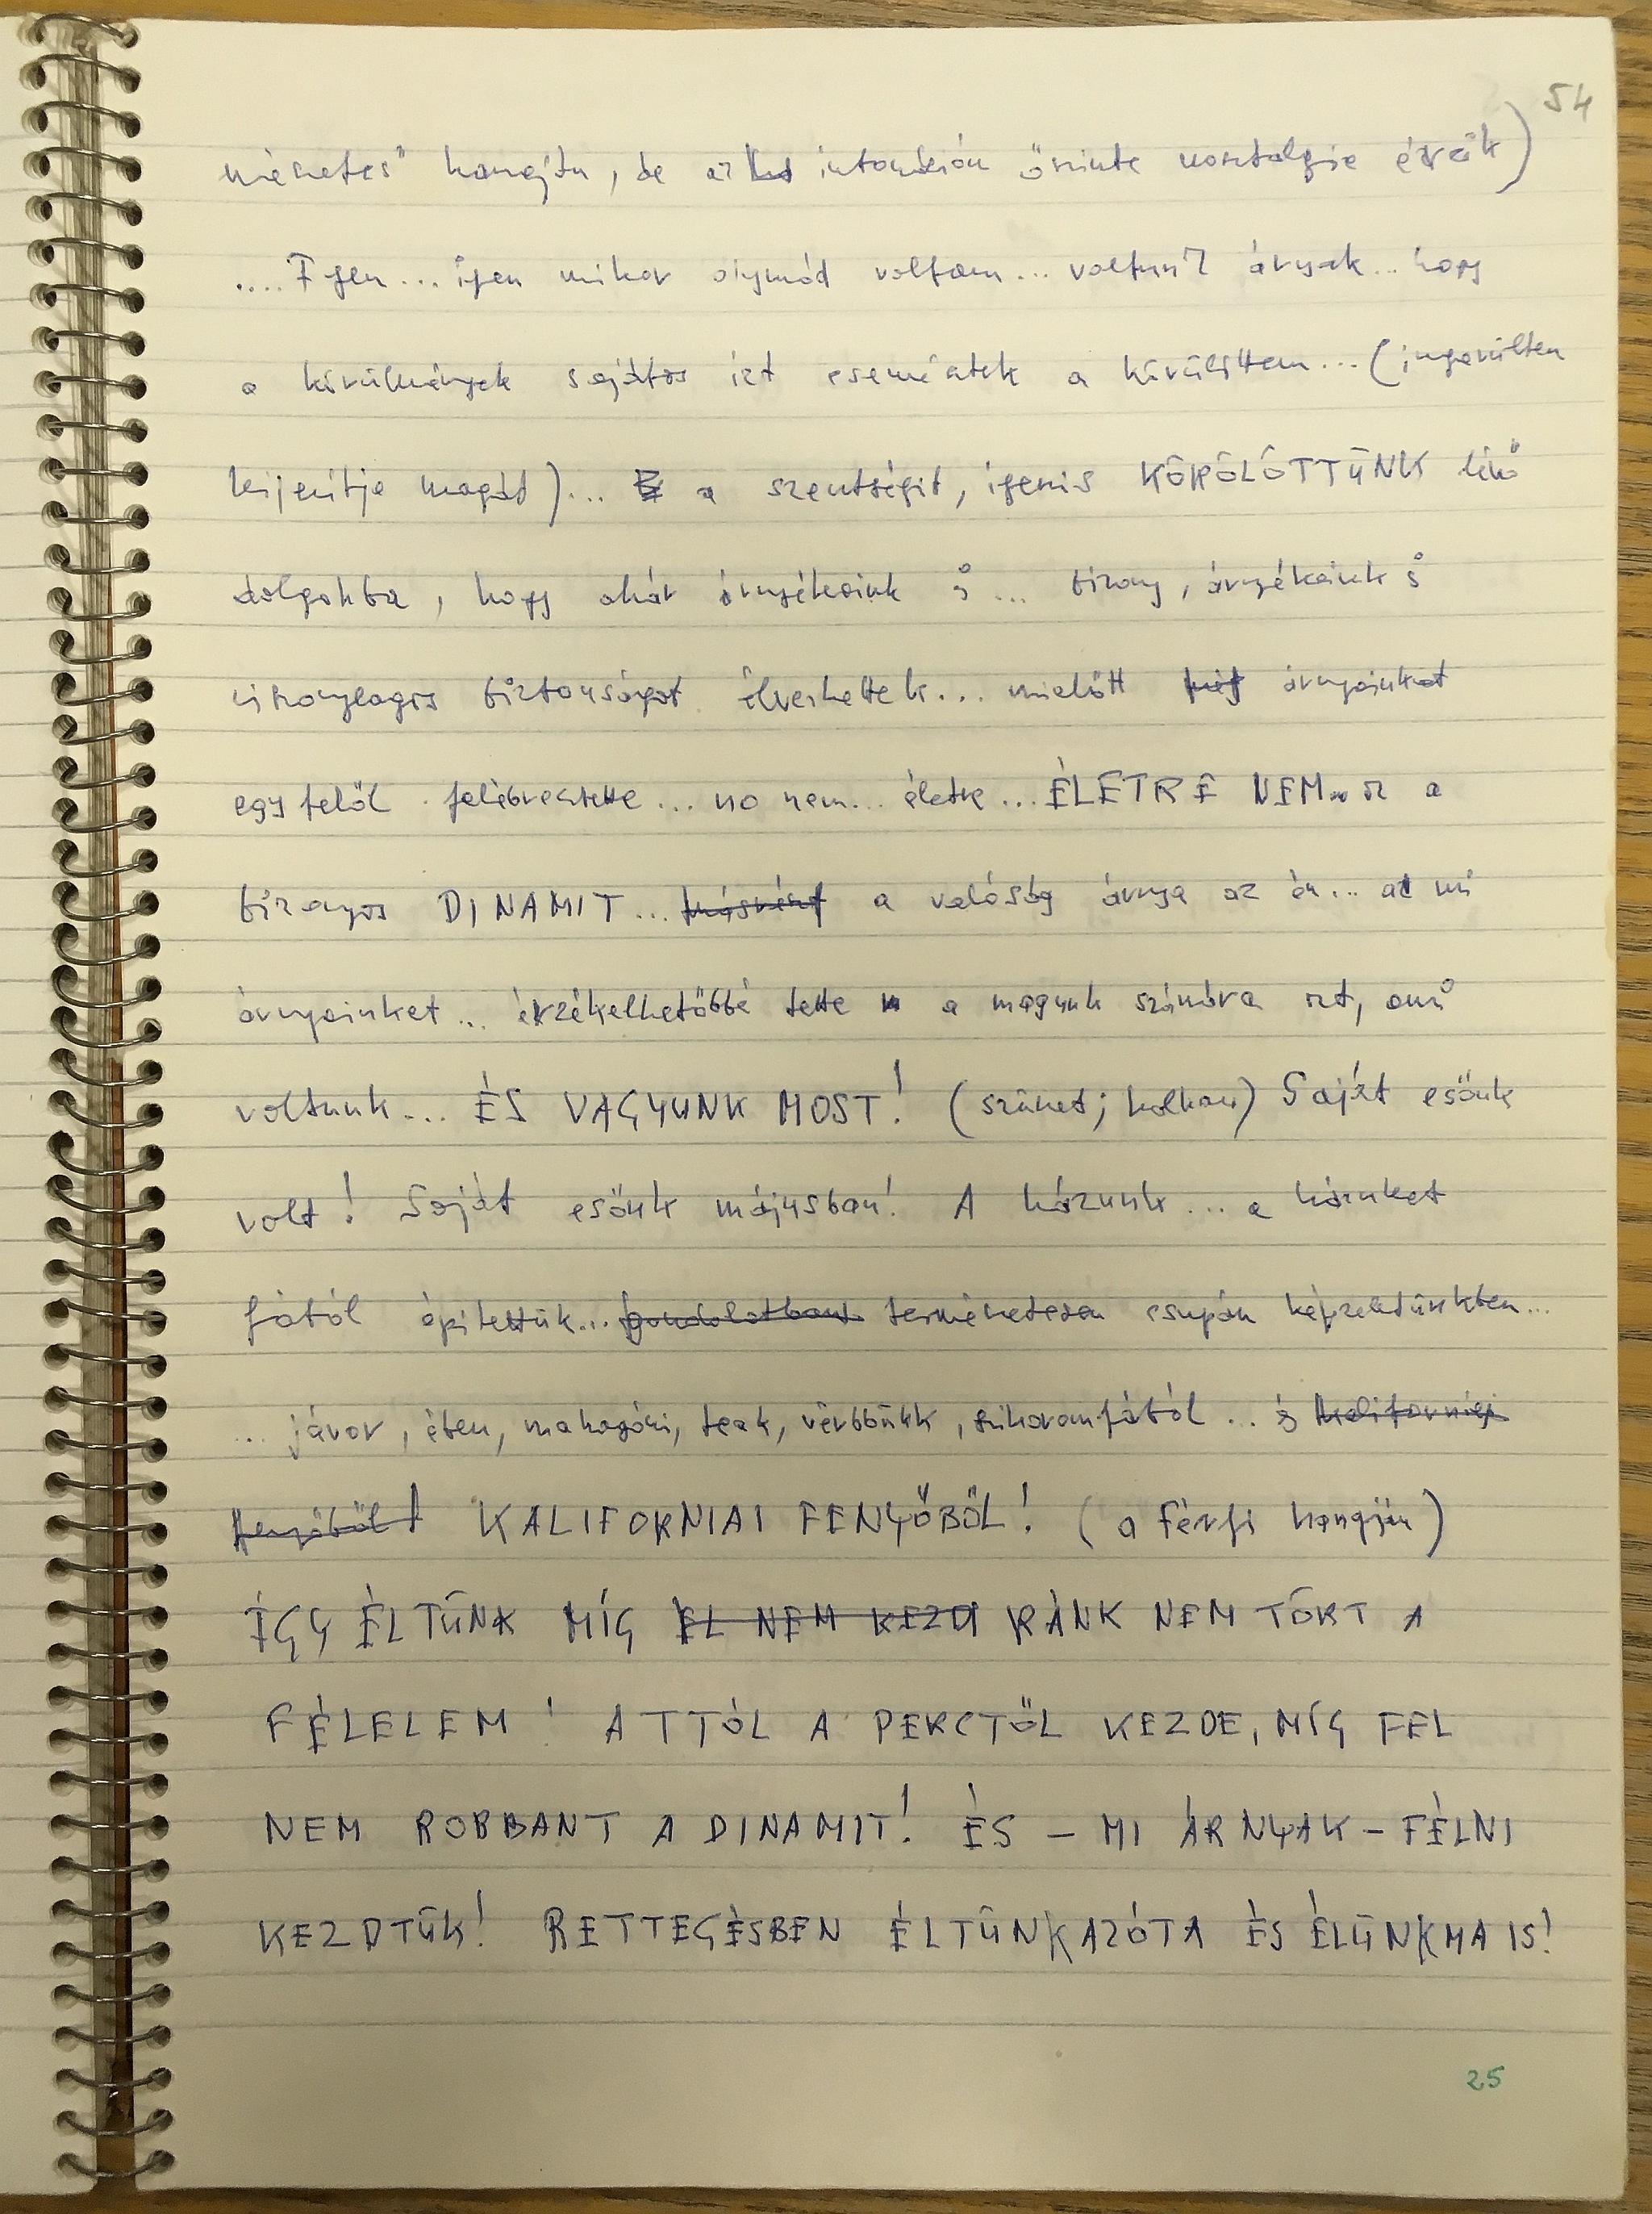 54
mészetes" hangján, de az intonáción őszinte nosztalgia érzik)
.... Igen... igen mikor olymód voltam... voltunk árnyak... hogy
a körülmények sajátos ízt csentek a körülöttem... (ingerülten
kijavítja magát)... a szentségit, igenis KÖRÜLÖTTÜNK lévő
dolgokba, hogy akár árnyékaink is... bizony, árnyékaink is
viszonylagos biztonságot élvezhettek... mielőtt árnyainkat
egyfelől felébresztette... no nem... életre... ÉLETRE NEM... az a
bizonyos DINAMIT... a valóság árnya az én... az mi
árnyainkat... érzékelhetőbbé tette a magunk számára azt, ami
voltunk... ÉS VAGYUNK MOST! (szünet; halkan) Saját esőnk
volt! Saját esőnk májusban! A házunk... a házunket
fából építettük... gondolatban természetesen csupán képzeletünkben...
... jávor, ében, mahagóni, teak, vérbükk, szikoramfából... és kaliforniai
fenyőből KALIFORNIAI FENYŐBŐL! (a férfi hangján)
ÍGY ÉLTÜNK MÍG EL NEM KEZD RÁNK NEM TÖRT A
FÉLELEM! ATTÓL A PERCTŐL KEZDE, MÍG FEL
NEM ROBBANT A DINAMIT! ÉS – MI ÁRNYAK – FÉLNI
KEZDTÜK! RETTEGÉSBEN ÉLTÜNK AZÓTA ÉS ÉLÜNK MA IS!
25